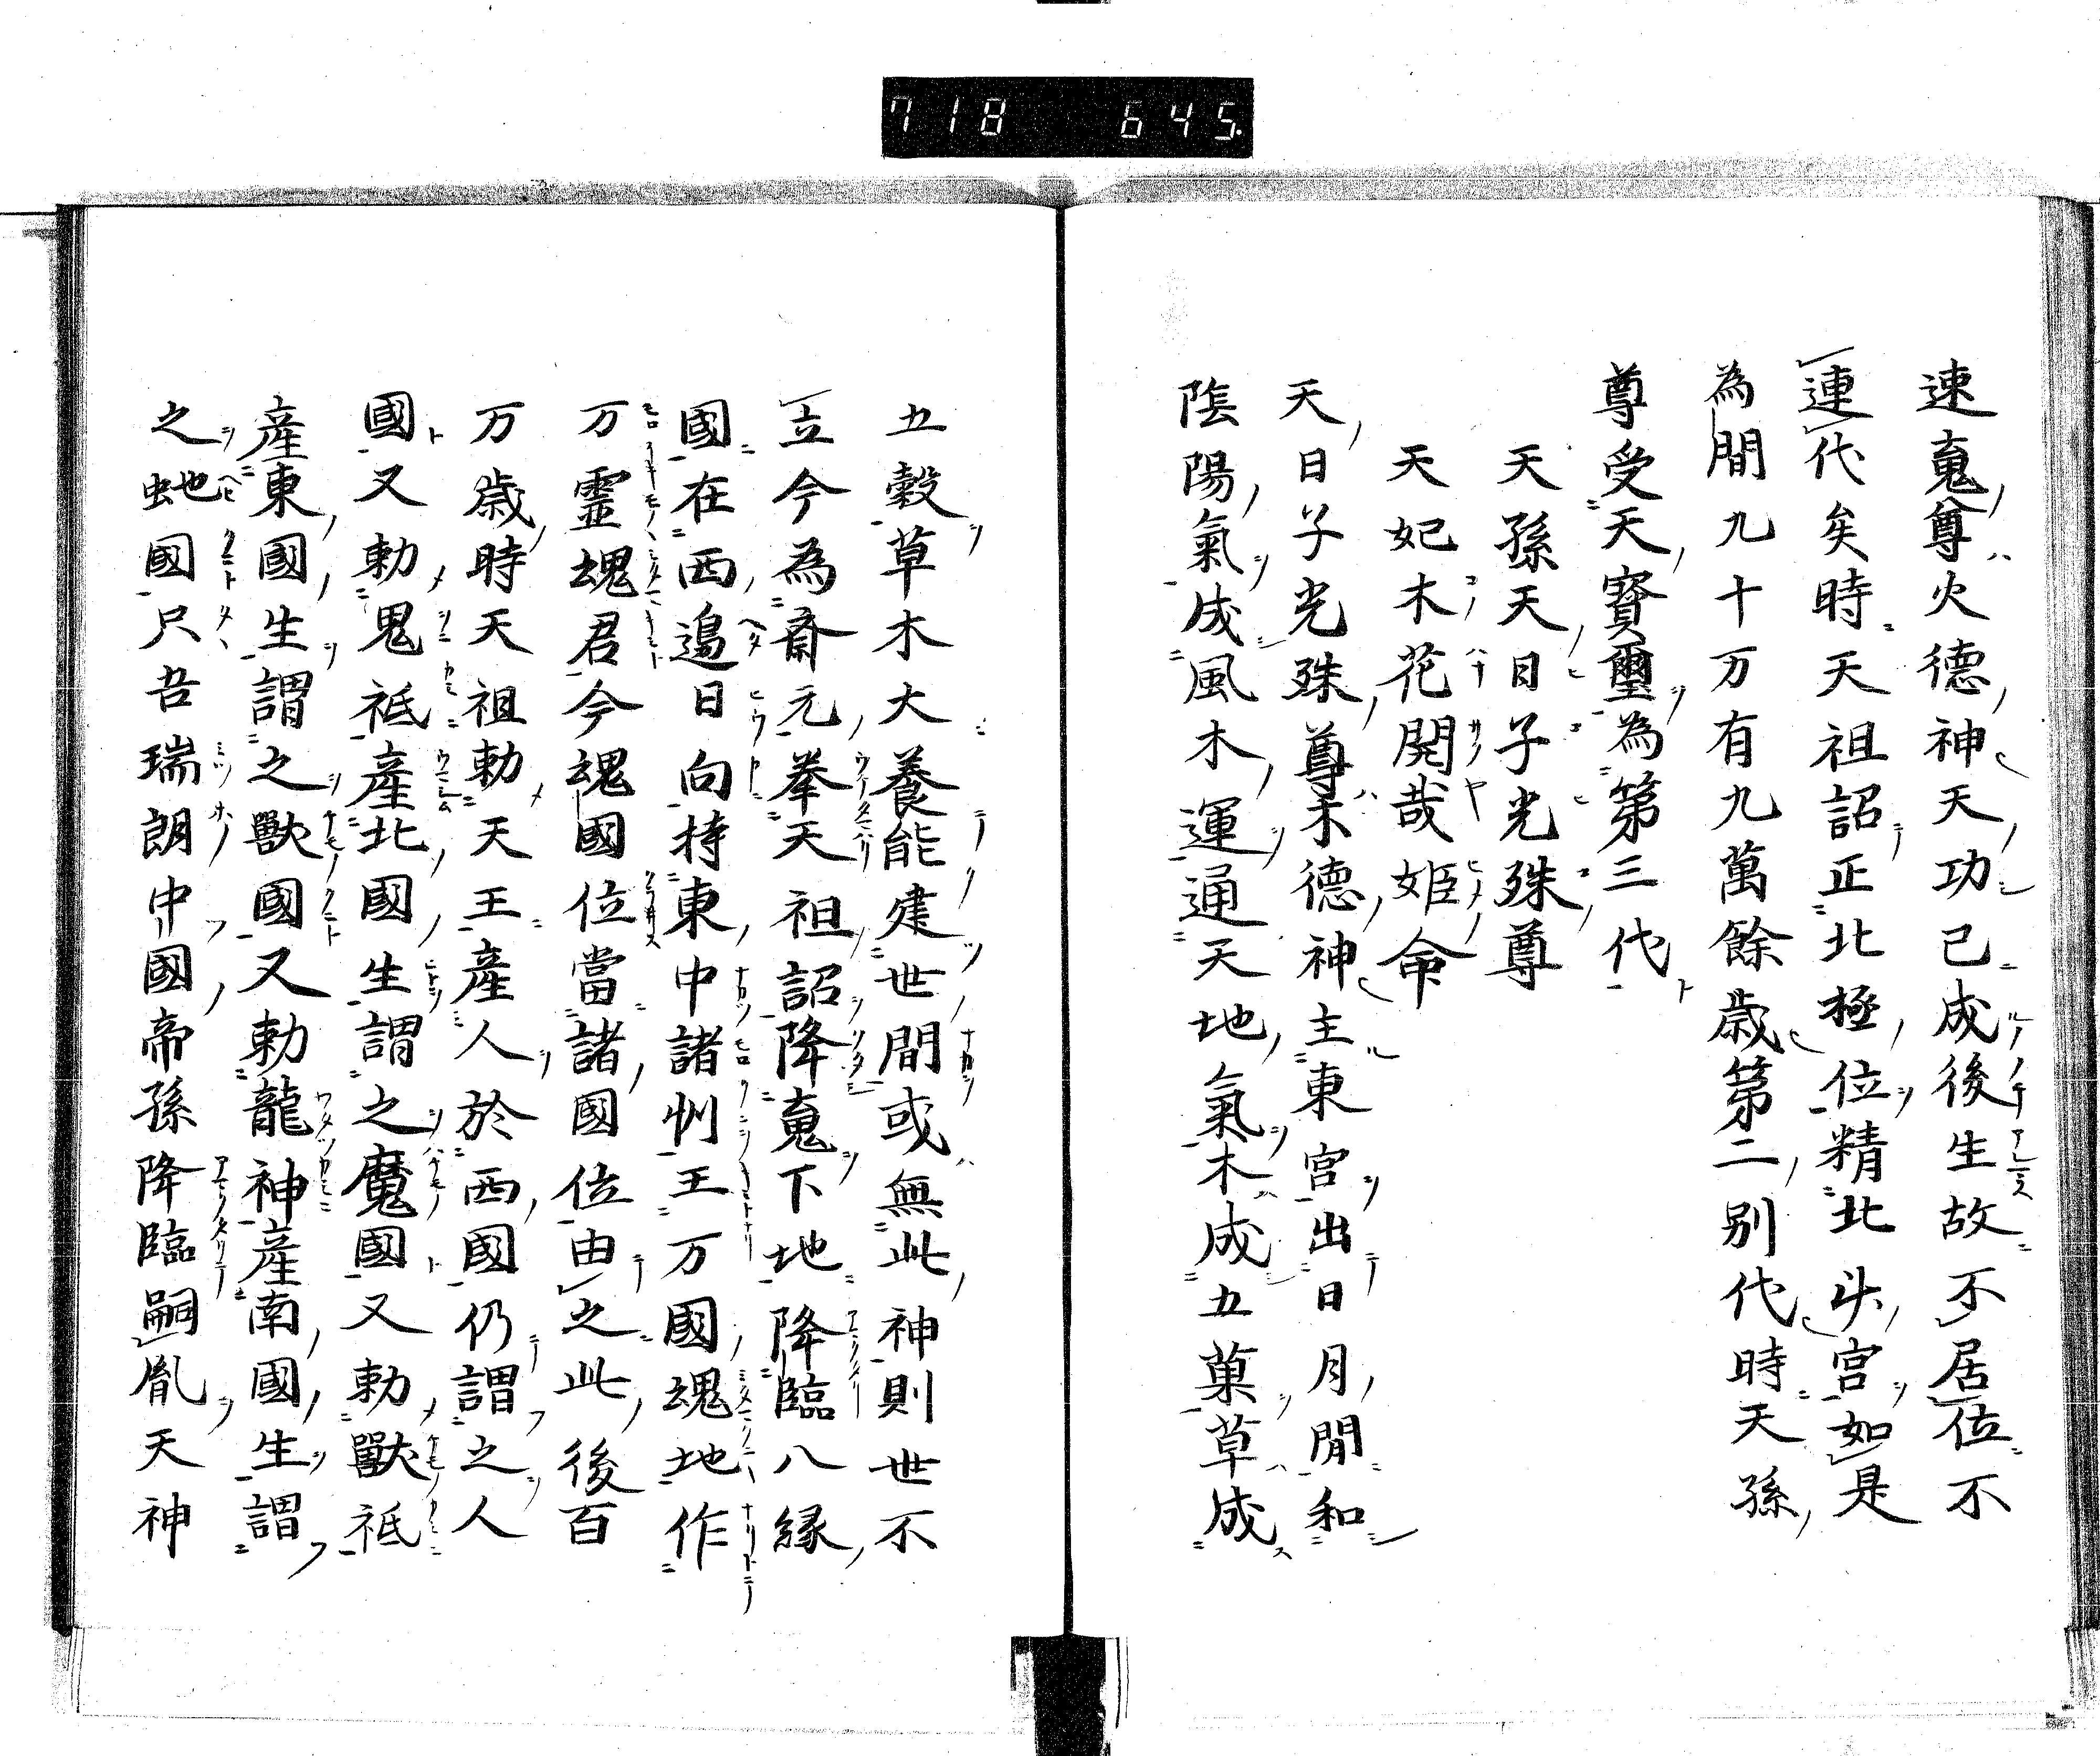 718 645.
速䰟尊火徳神天功已成後生故不居位不
連代矣時天祖詔正北極位精北斗宮如是
為間九十万有九萬餘歳第二別代時天孫
尊受天寳璽為第三代
天孫天日子光殊尊
天妃木花開哉姫命
天日子光殊尊木徳神主東宮出日月閒和
陰陽氣成風木運通天地氣木成五菓草成
五穀草木大養能建世間或無此神則世不
立今為齋元挙天祖詔降䰟下地降臨八縁
國在西邉日向持東中諸州王万國魂地作
万霊魂君今魂國位當諸國位由之此後百
万歳時天祖勅天王産人於西國仍謂之人
國又勅鬼祇産北國生謂之魔國又勅獸祇
産東國生謂之獸國又勅龍神産南國生謂
之虵國只吾瑞朗中國帝孫降臨嗣胤天神